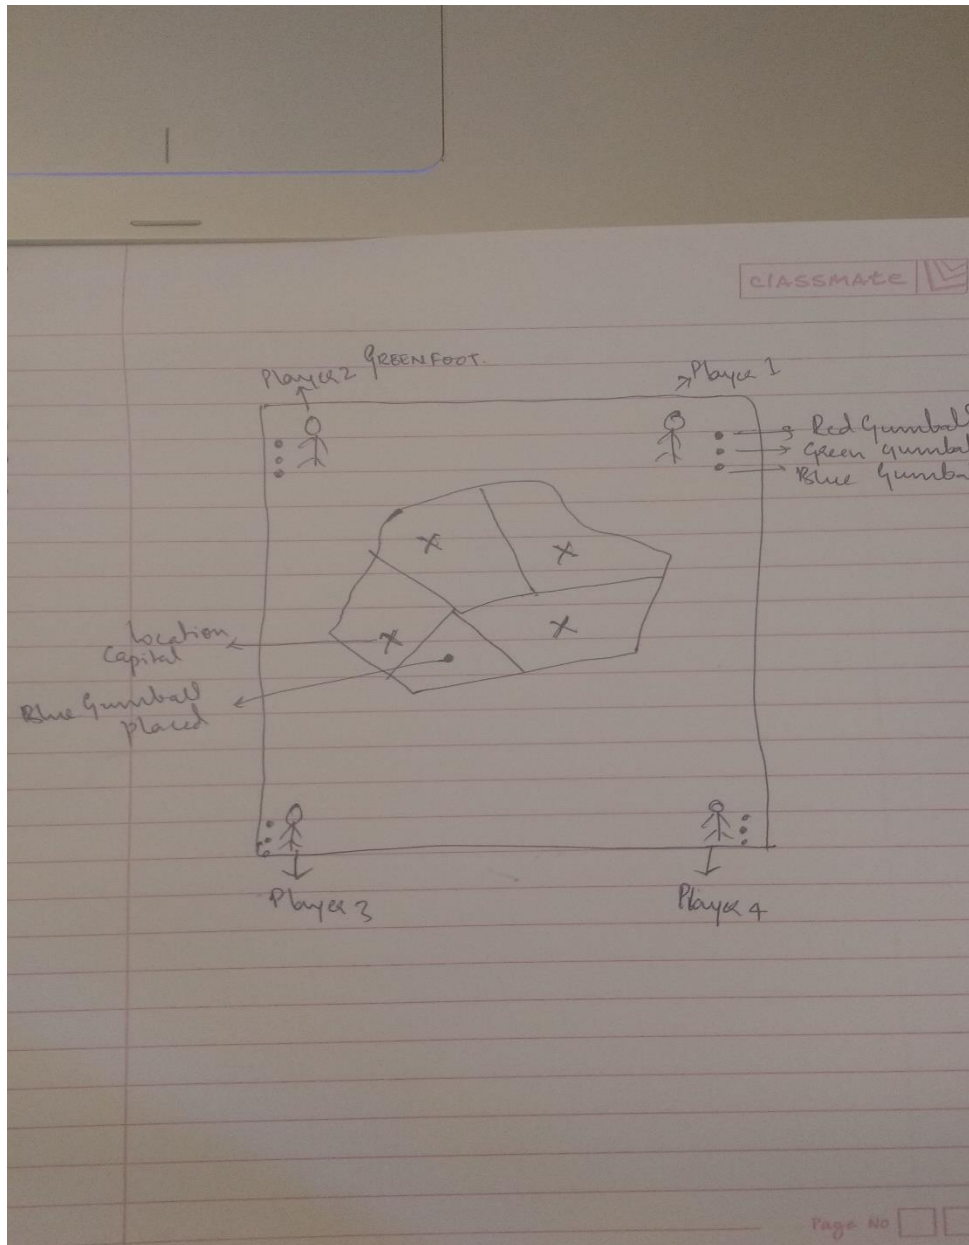 classmate
GREENFOOT.
Player 2
Player 1
Red Gumball
Green gumbal
Blue Gumba
Location
Capital
Blue Gumball
placed
Player 3
Player 4
Page No